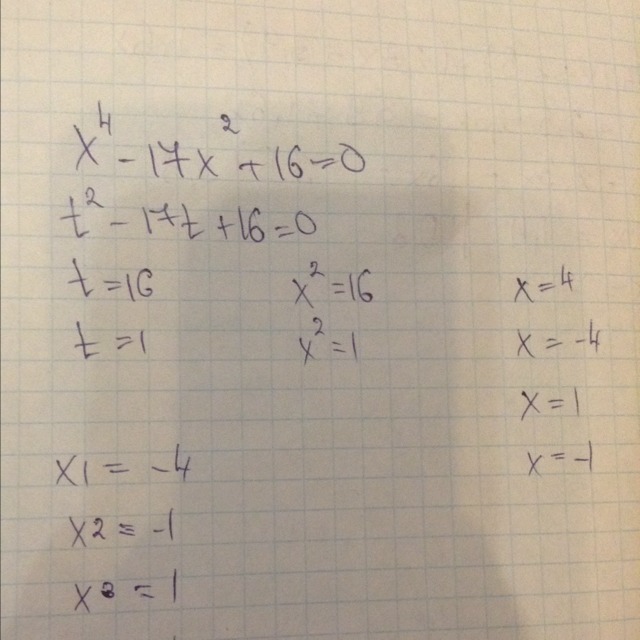 x⁴ - 17x² + 16 = 0
t² - 17t + 16 = 0
t = 16
x² = 16
x = 4
t = 1
x² = 1
x = -4
x = 1
x = -1
x1 = -4
x2 = -1
x3 = 1